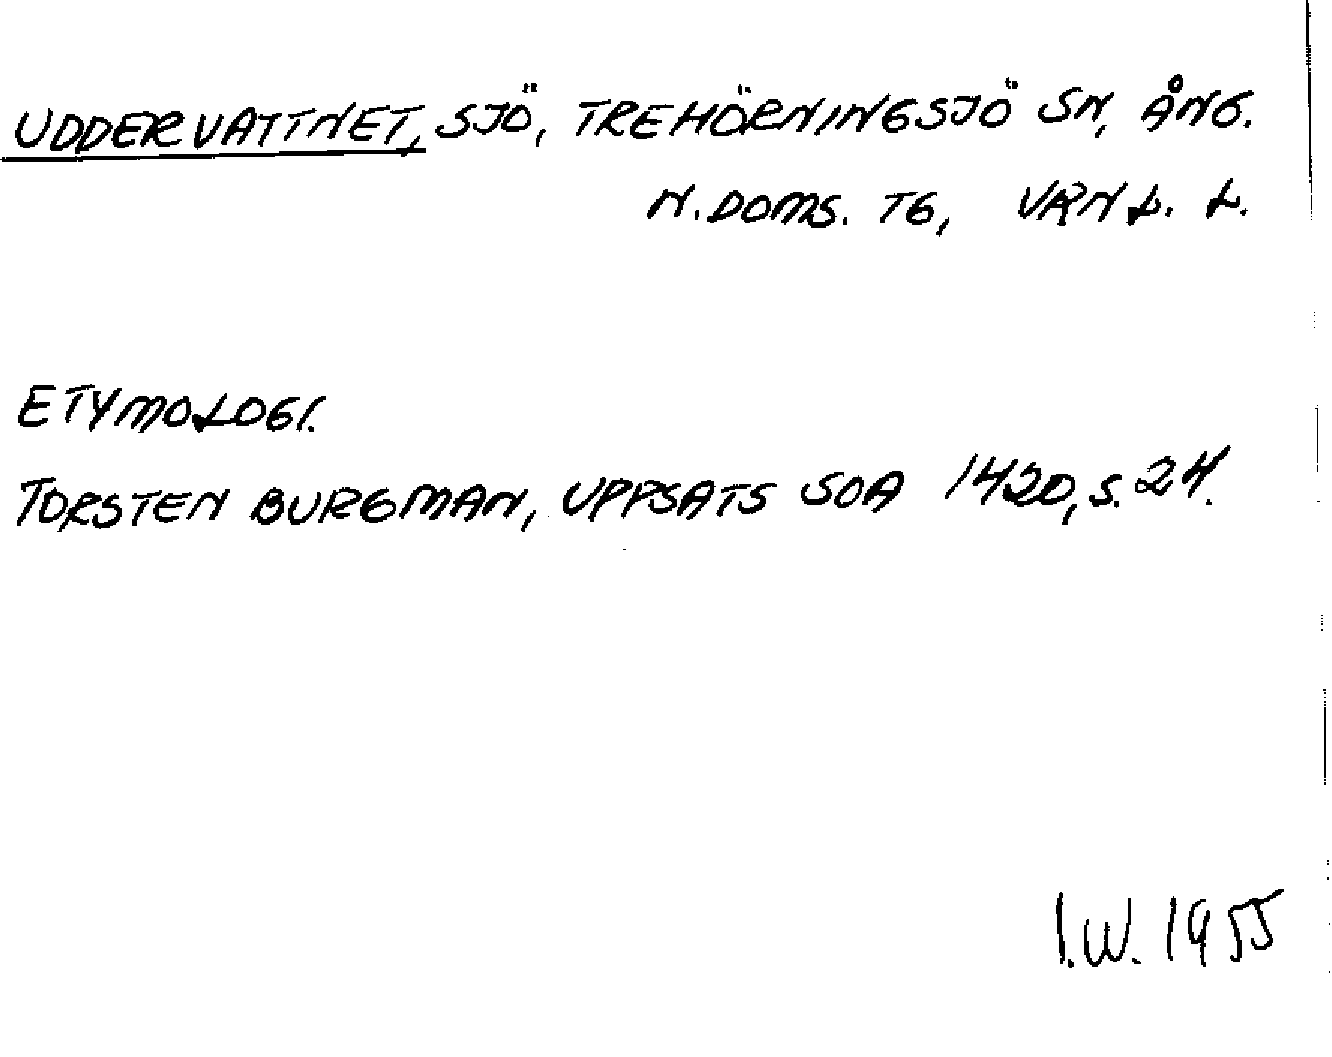 UDDERVATTNET, SJÖ, TREHÖRNINGSJÖ SN, ÅNG.
N. DOMS. TG, VRNL. L.
ETYMOLOGI.
TORSTEN BURGMAN, UPPSATS SOA 1420, S. 24.
I.W. 1955